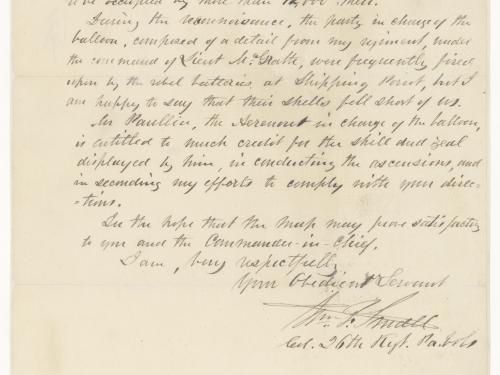 be occupied by more than 12,000 men.
During the reconnoisance, the party in charge of the
balloon, composed of a detail from my regiment, under
the command of Lieut Mc
were frequently fired
upon by the rebel batteries at Shipping Point, but I
am happy to say that their shells fell short of us.
Mr Paullin, the Aeronaut in charge of the balloon,
is entitled to much credit for the skill and zeal
displayed by him, in conducting the ascensions, and
in seconding my efforts to comply with your direc-
-tions.
In the hope that the map may prove satisfactory
to you and the Commander-in-Chief.
I am, very respectfully
Your Obedient Servant
Wm. F. Small
Col. 26th Regt. Pa. Vols